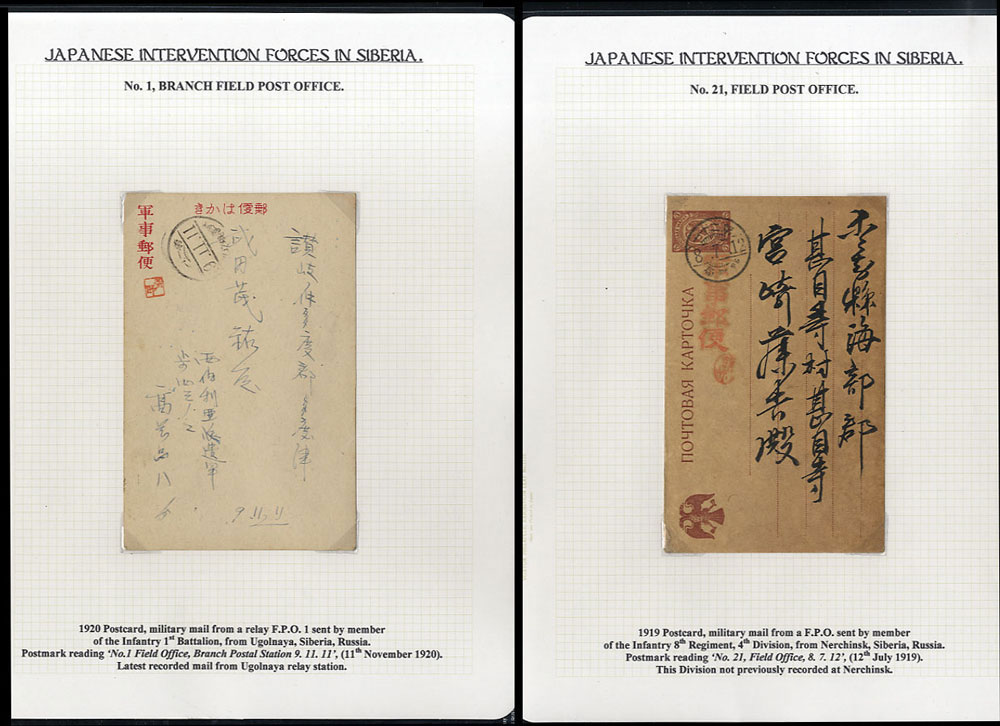 JAPANESE INTERVENTION FORCES IN SIBERIA.
No. 1, BRANCH FIELD POST OFFICE.
郵便はかき
軍事郵便
9.11.11
讃岐仲多度郡多度津
武田茂
西伯利亜派遣軍
9 11, 11
1920 Postcard, military mail from a relay F.P.O. 1 sent by member
of the Infantry 1st Battalion, from Ugolnaya, Siberia, Russia.
Postmark reading ‘No.1 Field Office, Branch Postal Station 9. 11. 11’, (11th November 1920).
Latest recorded mail from Ugolnaya relay station.
JAPANESE INTERVENTION FORCES IN SIBERIA.
No. 21, FIELD POST OFFICE.
縣海部郡
甚目寺村甚目寺
宮崎藤吉殿
軍事郵便
ПОЧТОВАЯ КАРТОЧКА
1919 Postcard, military mail from a F.P.O. sent by member
of the Infantry 8th Regiment, 4th Division, from Nerchinsk, Siberia, Russia.
Postmark reading ‘No. 21, Field Office, 8. 7. 12’, (12th July 1919).
This Division not previously recorded at Nerchinsk.